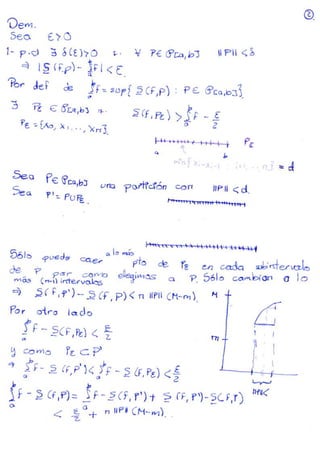 ②
Dem.
Sea ε>0
1- p.d ∃ δ(ε)>0 t. ∀ P∈℘[a,b] ||P||<δ
⇒ |S(f,P) - ∫f| < ε.
Por def de ∫f = sup{ S(f,P) : P∈ ℘[a,b]}.
∃ Pε ∈ ℘[a,b] S(f,Pε) > ∫f - ε/2
Pε = {x0, x1, ..., xn}. Pε
a b
min{ xi-xi-1 } = d
Sea P∈℘[a,b] una partición con ||P||<d.
Sea P' = P∪Pε.
Sólo puede caer a lo más pto de Pε en cada subintervalo
de P por como elegimos a P. Sólo cambian a lo
más (n-1) intervalos
⇒ S(f,P') - S(f,P) < n ||P|| (M-m). M
Por otro lado
∫f - S(f,Pε) < ε/2 m
y como Pε ⊂ P'
⇒ ∫f - S(f,P') < ∫f - S(f,Pε) < ε/2
∫f - S(f,P) = ∫f - S(f,P') + S(f,P') - S(f,P) ||P||<
< ε/2 + n ||P|| (M-m).